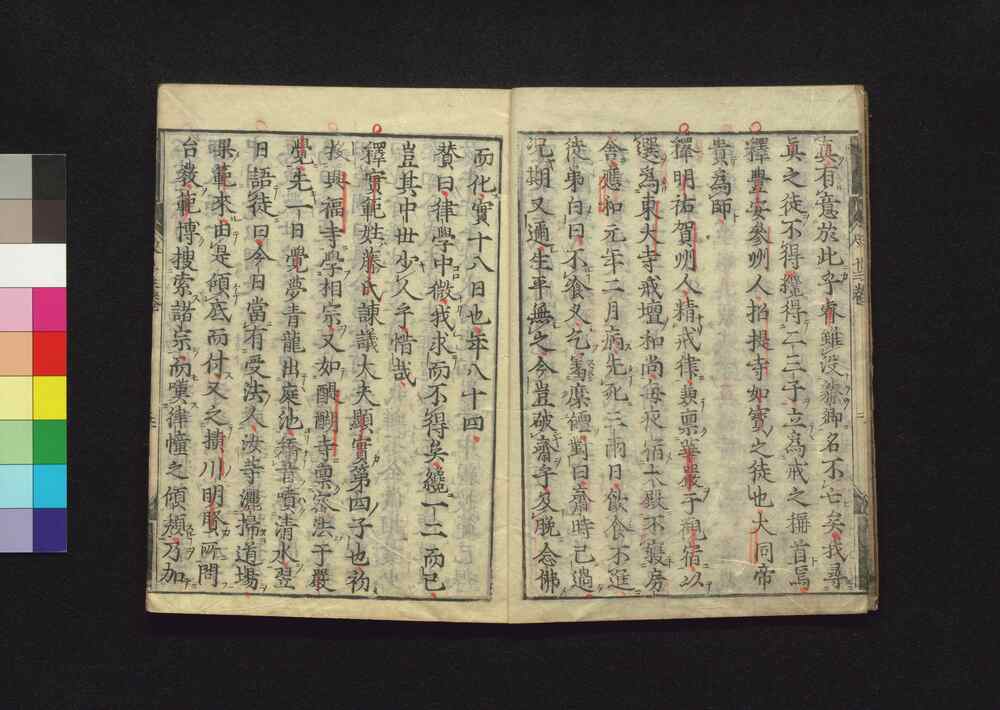 真有意於此乎睿雖没卿名不亡矣我尋
真之徒不得纔得二三子立為戒之稱首焉
釋豐安參州人招提寺如寶之徒也大同帝
貴為師
釋明祐賀州人精戒律兼禀華嚴于觀宿以
選為東大寺戒壇和尚毎夜宿大殿不寢房
舎應和元年二月病先死二兩日飲食不進
徒弟白曰不飡久乞羞糜饘對曰齋時已過
況期又邇生平無之今豈破齋乎及晚念佛
而化實十八日也年八十四
賛曰律學中微我求而不得矣纔一二而已
豈其中世少人乎惜哉
釋實範姓藤氏諫議大夫顯實第四子也初
投興福寺學相宗又如醍醐寺禀密法于嚴
覺先一日覺夢青龍出庭池矯首噴清水翌
日語徒曰今日當有受法人汝等灑掃道場
果範來由是傾底而付又之横川明賢所問
台教範博搜索諸宗而嘆律幢之傾頽乃加